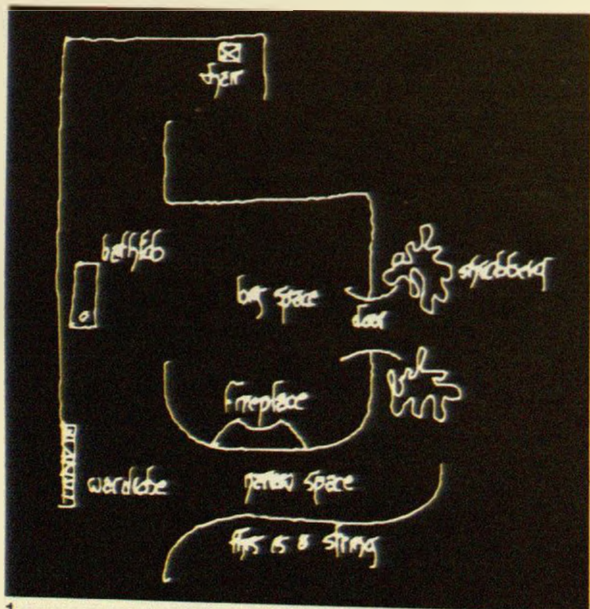 chair
bathtub
big space
shrubbery
door
fireplace
wardrobe
narrow space
this is a string
1